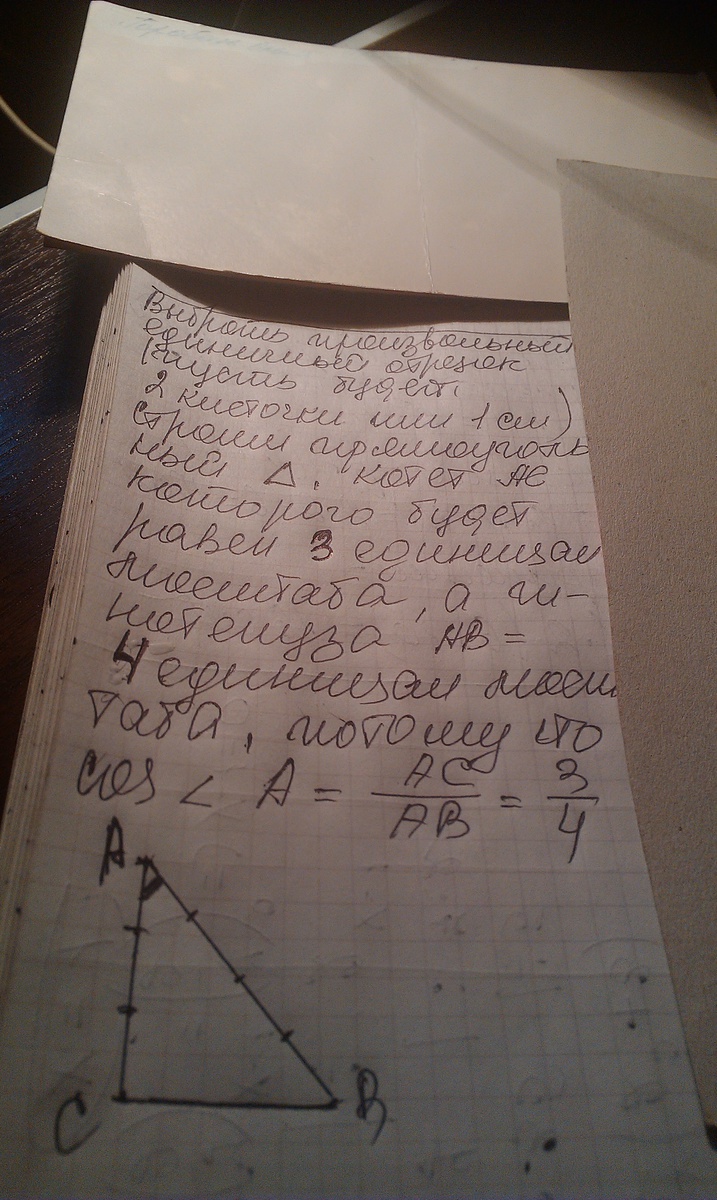 Выбрать произвольный
единичный отрезок
(пусть будет
2 клеточки или 1 см)
строим прямоуголь
ный △, катет АС
которого будет
равен 3 единицам
масштаба, а ги-
потенуза АВ =
4 единицам масш
таба, потому что
cos < A = AC/AB = 3/4
A
C B